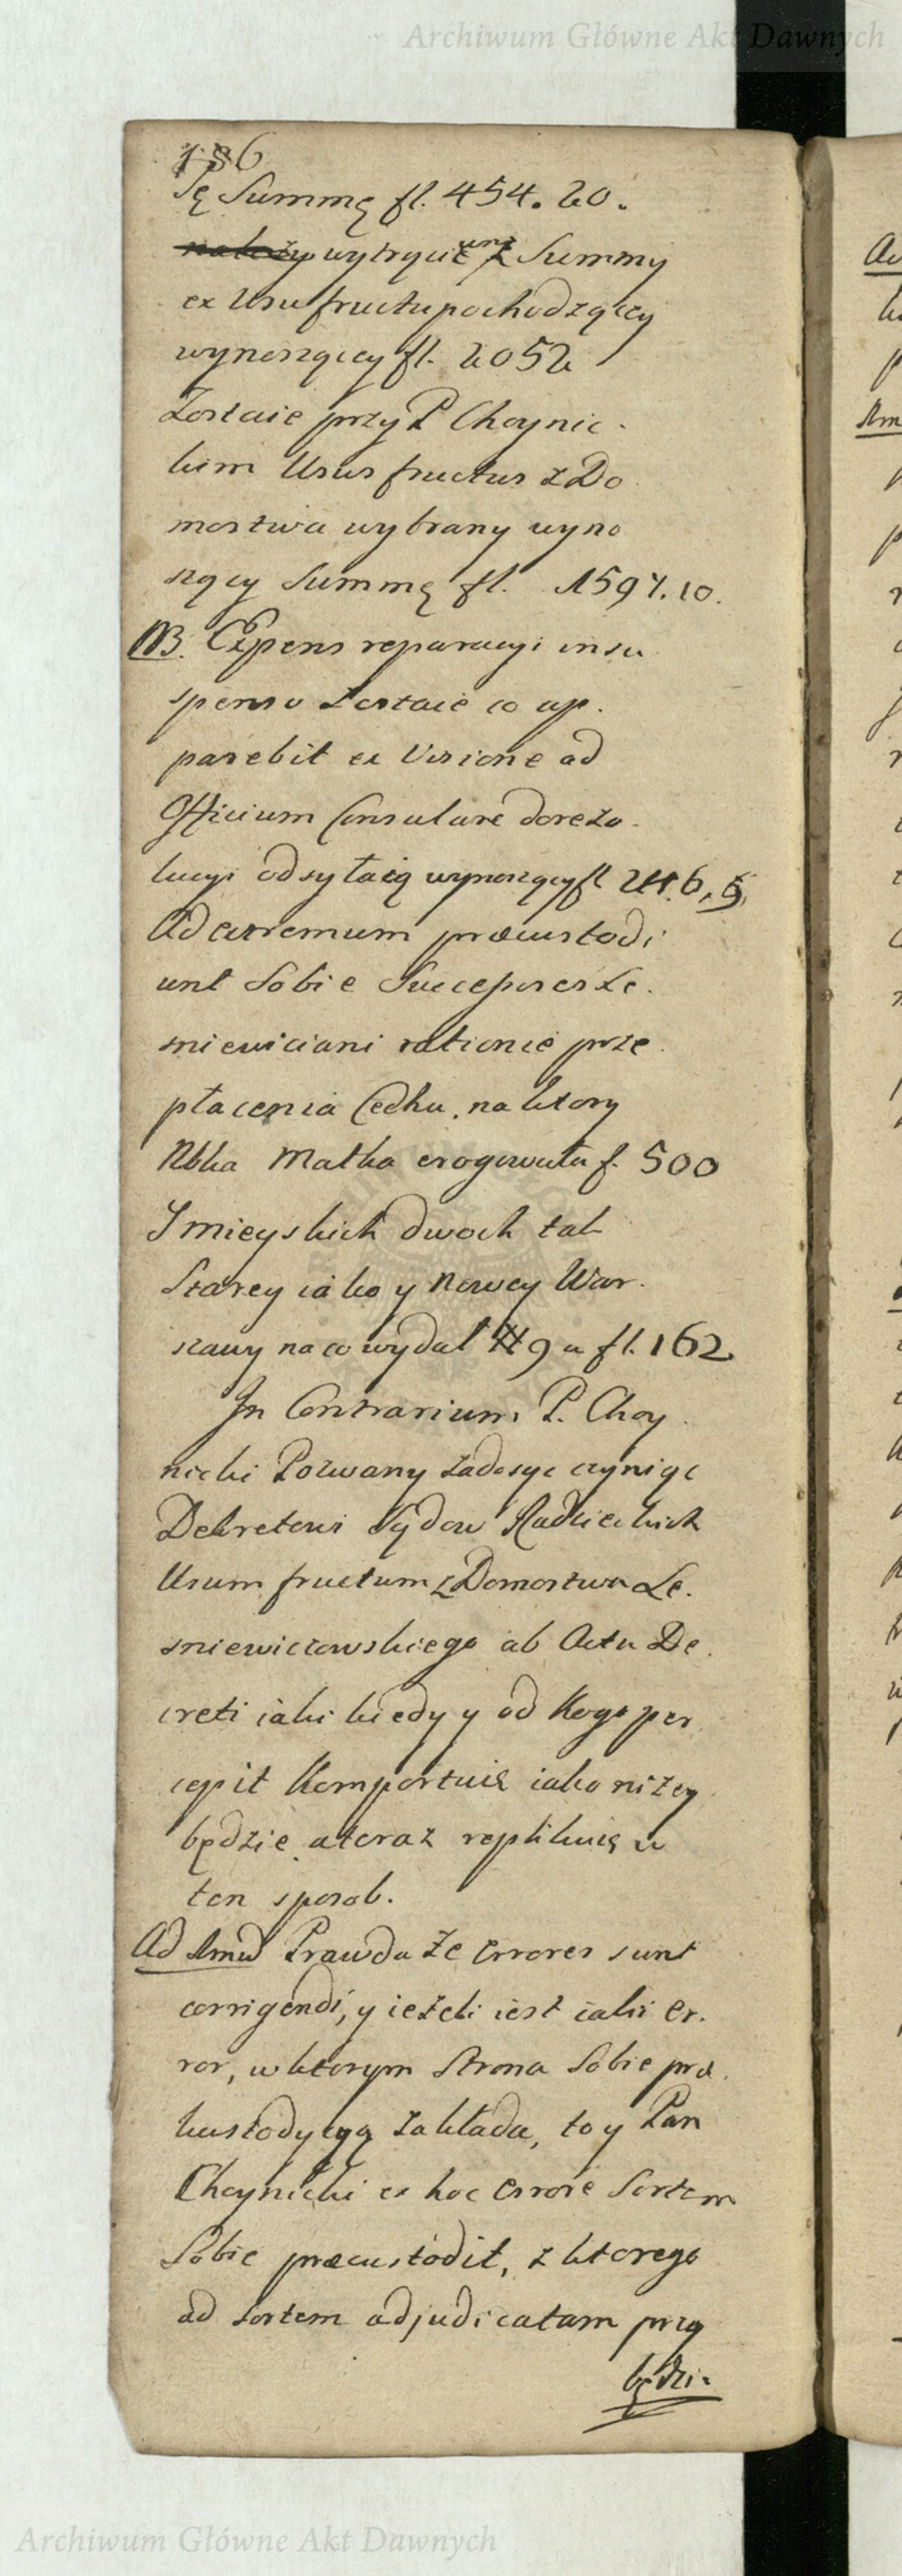 Archiwum Główne Akt Dawnych
186
Tę Summę fl. 454. 20.
należy wytrącić z Summy
ex Usufructu pochodzącey
wynoszącey fl. 2052
Zostaie przy P. Choynic-
kim Usus fructus z Do
mostwa wybrany wyno
szący Summę fl. 1597.10.
NB. Expens reparacyi in su
spenso zostaie co ap-
parebit ex Visione ad
Officium Consulare do rezo-
lucyi odsyłaią wynoszący fl
Ad extremum præcustodi
unt Sobie Successores Le-
sniewiciani ratione prze
płacenia Cechu, na ktory
Nbka Matka erogowała f. 500
Y mieyskich dwoch tak
Starey iako y Nowey War-
szawy na co wydał fl. 162
In Contrarium P. Choy
nicki Pozwany zadosyc czyniąc
Dekretowi Sądow Radzieckich
Usum fructum z Domostwa Le-
sniewiczowskiego ab Actu De
creti iaki kiedy y od Kogo per
cepit Komportuie iako niżey
będzie, a teraz replikuie w
ten sposob.
Ad 1mum Prawda że Errores sunt
corrigendi, y ieżeli iest iaki Er-
ror, w ktorym Strona Sobie præ
kustodycyą zakłada, to y Pan
Choynicki ex hoc Errore Sortem
Sobie præcustodit, z ktorego
ad Sortem adjudicatam przy
będzi-
Archiwum Główne Akt Dawnych